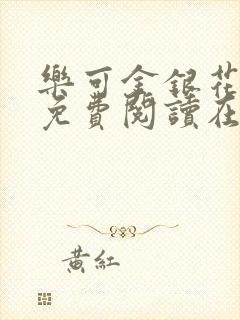 樂可金銀花
免費閱讀在
黃紅